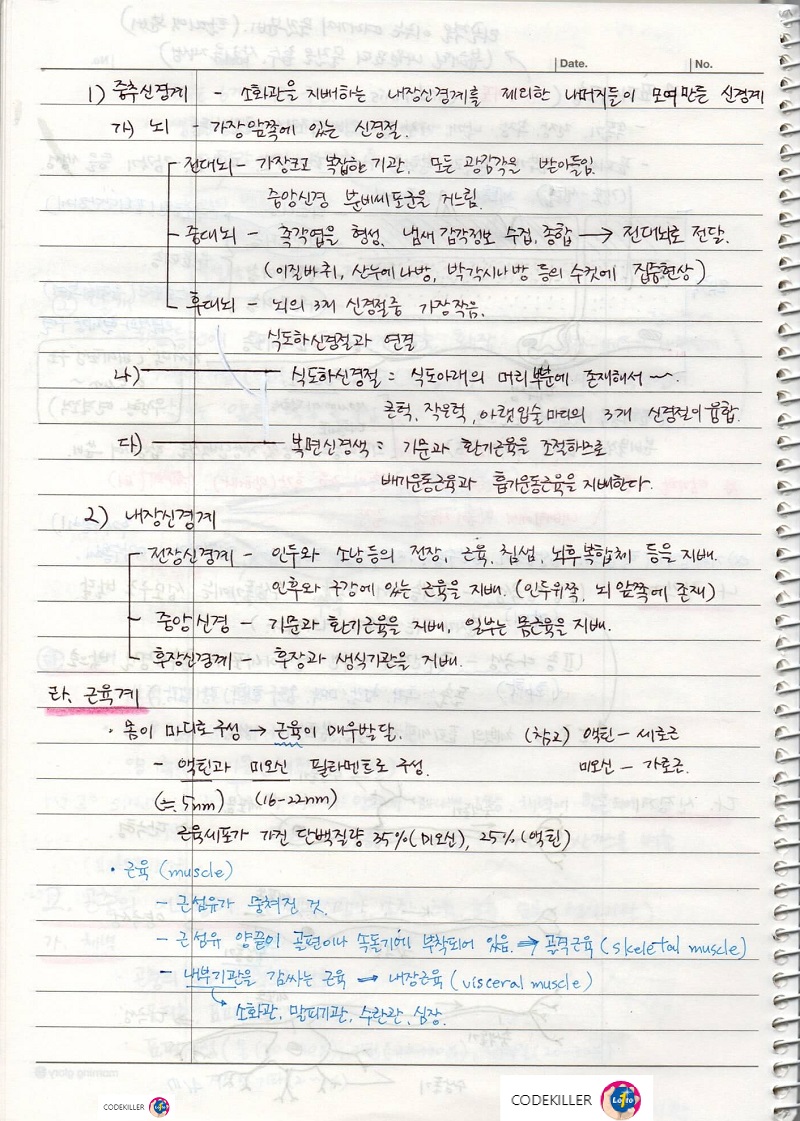 Date.
No.
1) 중추신경계 - 소화관을 지배하는 내장신경계를 제외한 나머지들이 모여만든 신경계
가) 뇌 - 가장앞쪽에 있는 신경절.
전대뇌 - 가장크고 복잡한 기관, 모든 광감각을 받아들임.
중앙신경 분비세포군을 거느림.
중대뇌 - 촉각엽을 형성, 냄새 감각정보 수집, 종합 → 전대뇌로 전달.
(이질바퀴, 산누에나방, 박각시나방 등의 수컷에 집중현상)
후대뇌 - 뇌의 3개 신경절중 가장작음.
식도하신경절과 연결
나) 식도하신경절 = 식도아래의 머리부분에 존재해서 ~.
큰턱, 작은턱, 아랫입술마디의 3개 신경절이 융합.
다) 복면신경색 = 기문과 환기근육을 조절하므로
배가운동근육과 흡기운동근육을 지배한다.
2) 내장신경계
전장신경계 - 인두와 소낭등의 전장, 근육, 침샘, 뇌후복합체 등을 지배.
인후와 구강에 있는 근육을 지배. (인두위쪽, 뇌 앞쪽에 존재)
중앙신경 - 기문과 환기근육을 지배, 일부는 몸근육을 지배.
후장신경계 - 후장과 생식기관을 지배.
라. 근육계
· 몸이 마디로 구성 → 근육이 매우발달. (참고) 액틴 - 세로근
- 액틴과 미오신 필라멘트로 구성. 미오신 - 가로근.
(≒ 5nm) (16-22nm)
근육세포가 가진 단백질량 35%(미오신), 25%(액틴)
· 근육 (muscle)
- 근섬유가 뭉쳐진 것.
- 근섬유 양끝이 골편이나 속돌기에 부착되어 있음. ⇒ 골격근육 (skeletal muscle)
- 내부기관을 감싸는 근육 ⇒ 내장근육 (visceral muscle)
소화관, 말피기관, 수란관, 심장.
morning glory
CODEKILLER
CODEKILLER